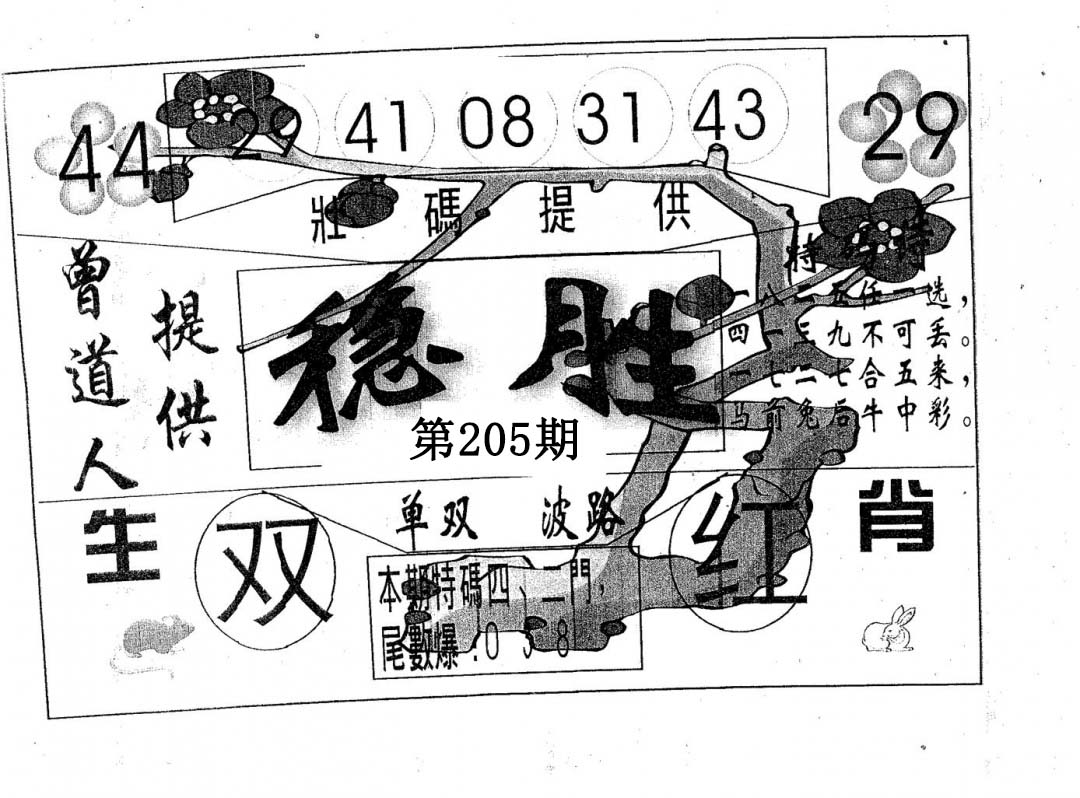 44 29 41 08 31 43 29
壯碼提供
特码诗
一八二五任一选，
四一三九不可丢。
一七二七合五来，
马前兔后牛中彩。
曾道人
提供
稳胜
第205期
生肖
单双 波路
双 红
本期特碼四、二門，
尾數爆：038